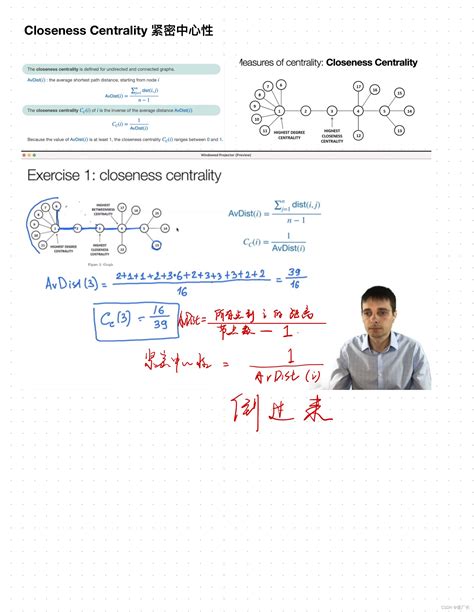 Closeness Centrality 紧密中心性
The closeness centrality is defined for undirected and connected graphs.
AvDist(i) : the average shortest path distance, starting from node i
AvDist(i) = \frac{\sum_{j=1}^{n} dist(i,j)}{n-1}
The closeness centrality C_C(i) of i is the inverse of the average distance AvDist(i)
C_C(i) = \frac{1}{AvDist(i)}
Because the value of AvDist(i) is at least 1, the closeness centrality C_C(i) ranges between 0 and 1.
Measures of centrality: Closeness Centrality
HIGHEST DEGREE CENTRALITY
HIGHEST CLOSENESS CENTRALITY
Windowed Projector (Preview)
Exercise 1: closeness centrality
HIGHEST BETWEENNESS CENTRALITY
HIGHEST DEGREE CENTRALITY
HIGHEST CLOSENESS CENTRALITY
AvDist(i) = \frac{\sum_{j=1}^{n} dist(i,j)}{n-1}
C_C(i) = \frac{1}{AvDist(i)}
AvDist(3) = \frac{2+1+1+2+3·6+2+3+3+3+2+2}{16} = \frac{39}{16}
C_c(3) = \frac{16}{39}
紧密中心性 = \frac{1}{AvDist(i)}
倒过来